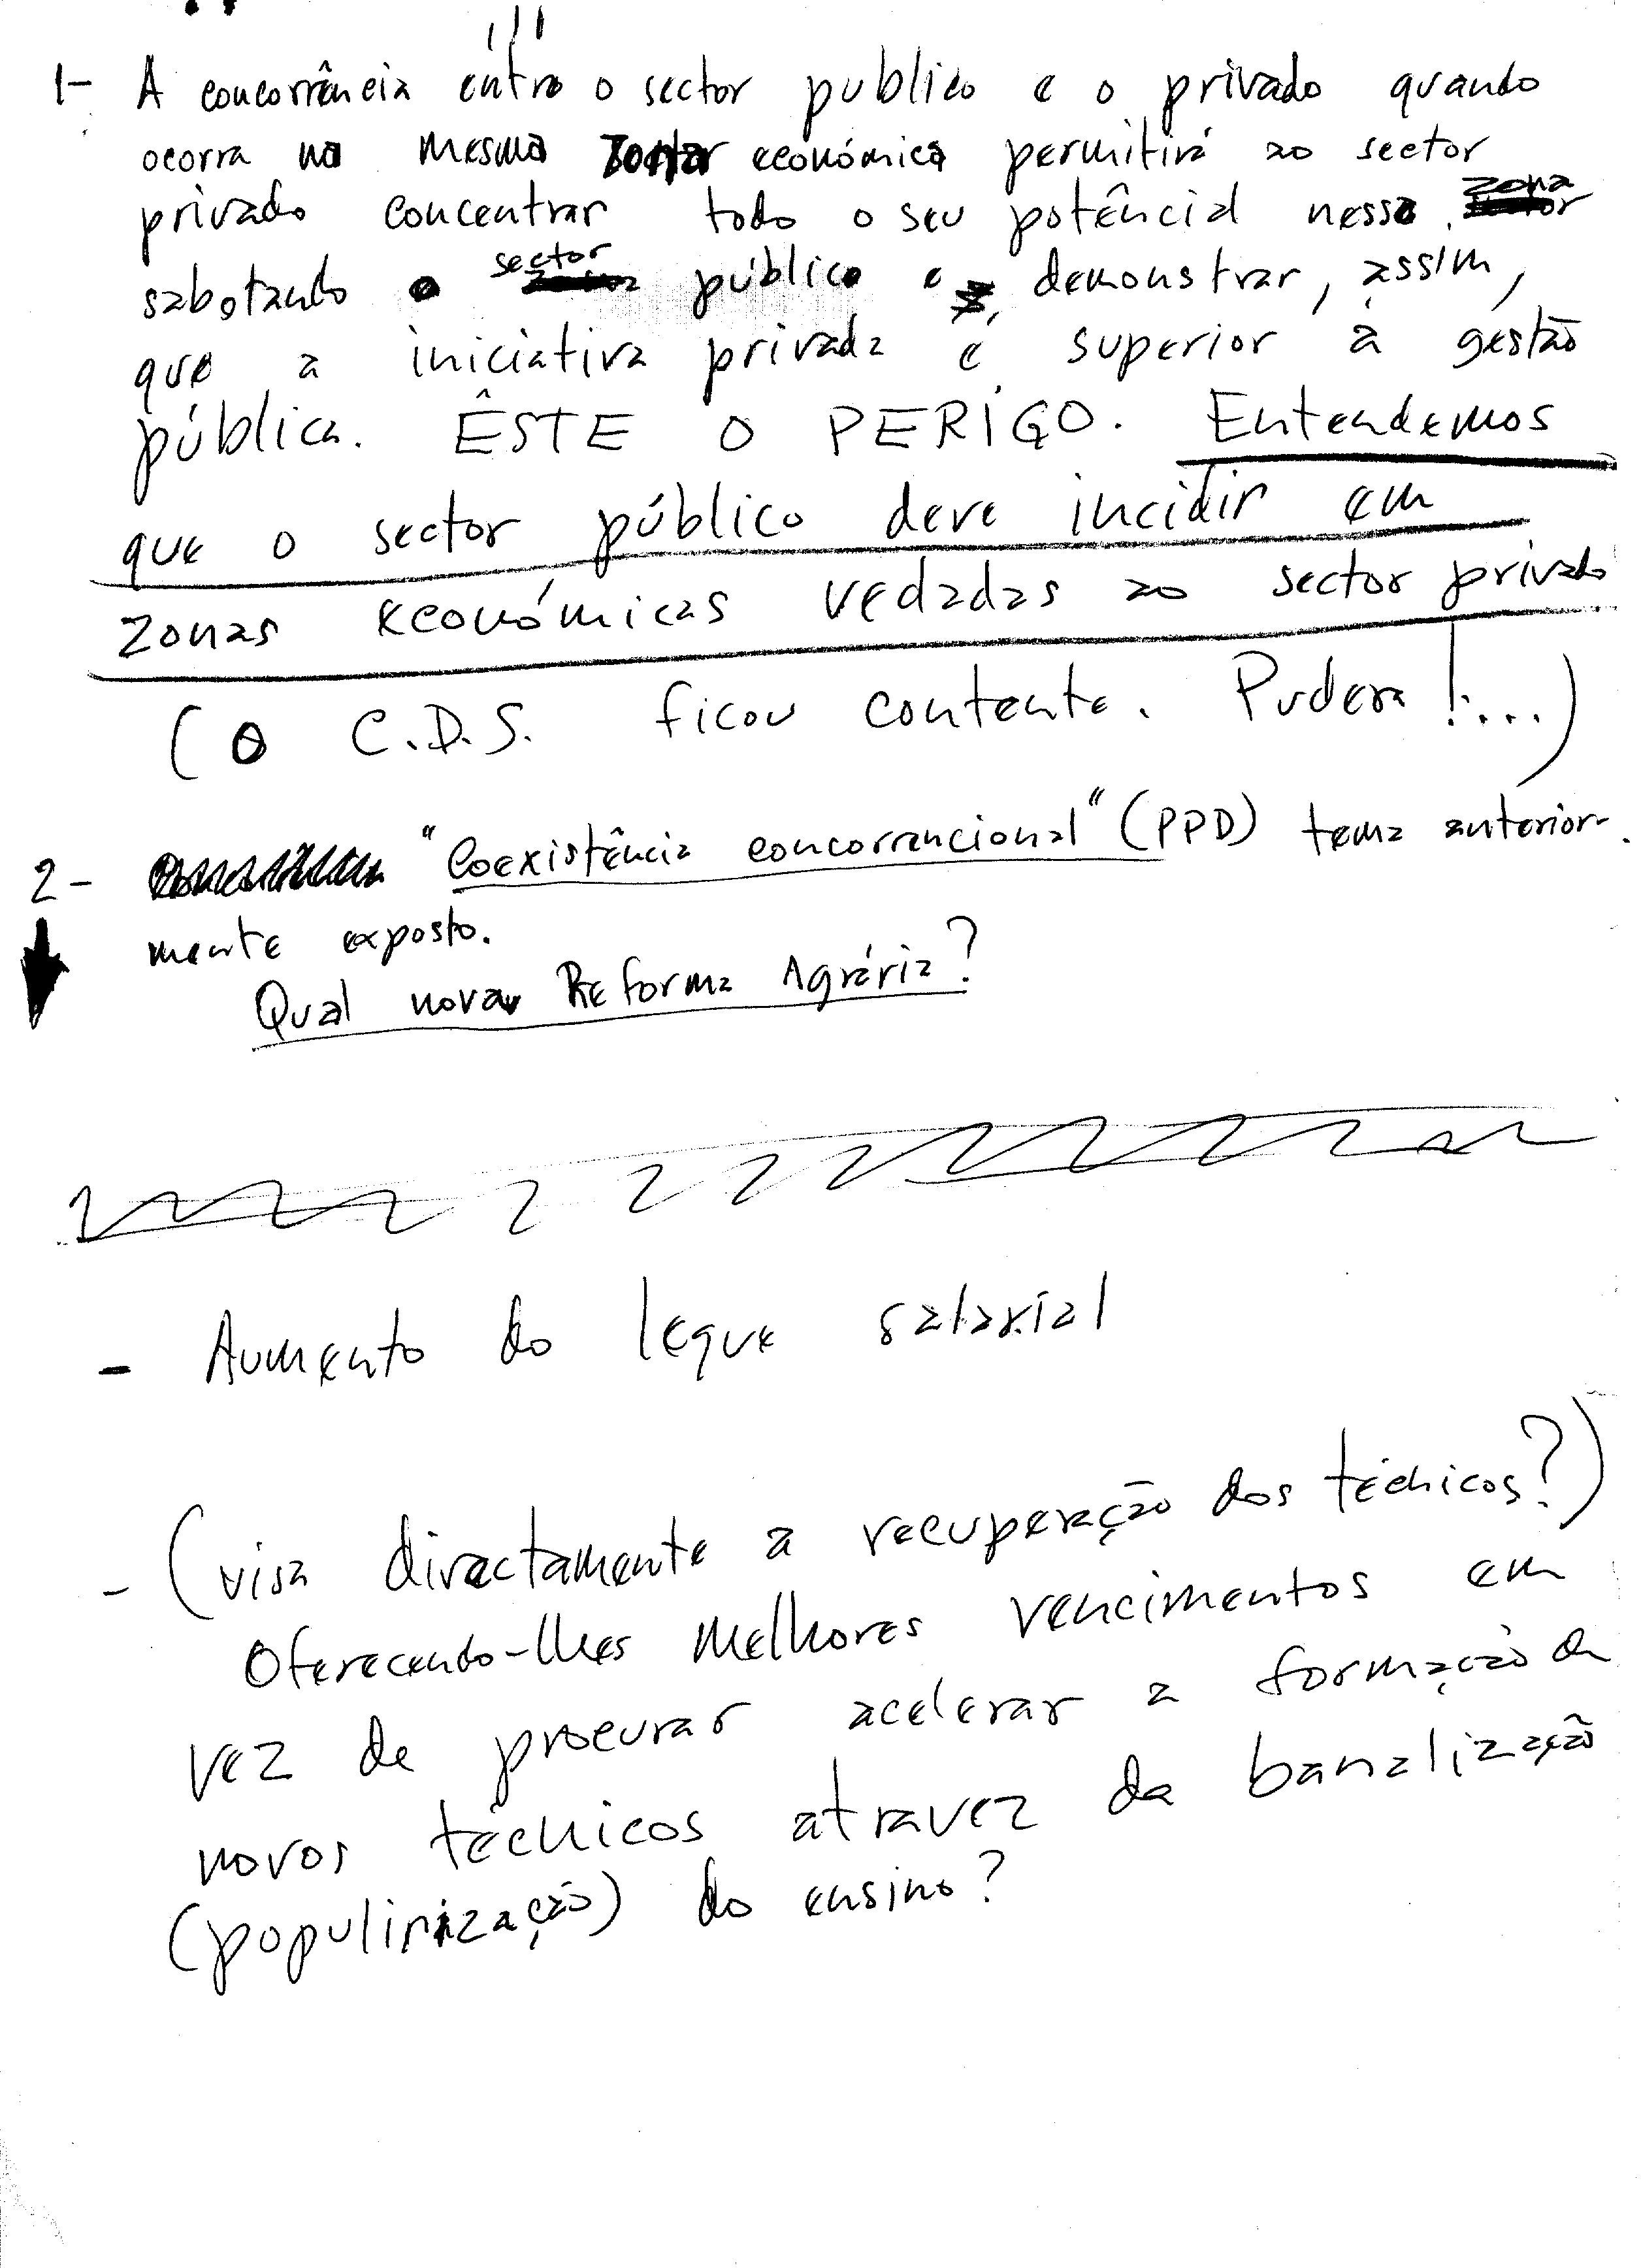 1- A concorrência entre o sector publico e o privado quando
ocorra na mesma zona económica permitirá ao sector
privado concentrar todo o seu potêncial nessa zona
sabotando o sector público e, demonstrar, assim,
que a iniciativa privada é superior à gestão
pública. ÊSTE O PERIGO. Entendemos
que o sector público deve incidir em
zonas económicas vedadas ao sector privado
(O C.D.S. ficou contente. Pudera!...)
2- "Coexistência concorrencional" (PPD) tema anterior-
mente exposto.
Qual nova Reforma Agrária?
- Aumento do leque salarial
- (visa directamente a recuperação dos técnicos?)
Oferecendo-lhes melhores vencimentos em
vez de procurar acelerar a formação de
novos técnicos atravez da banalização
(populirização) do ensino?